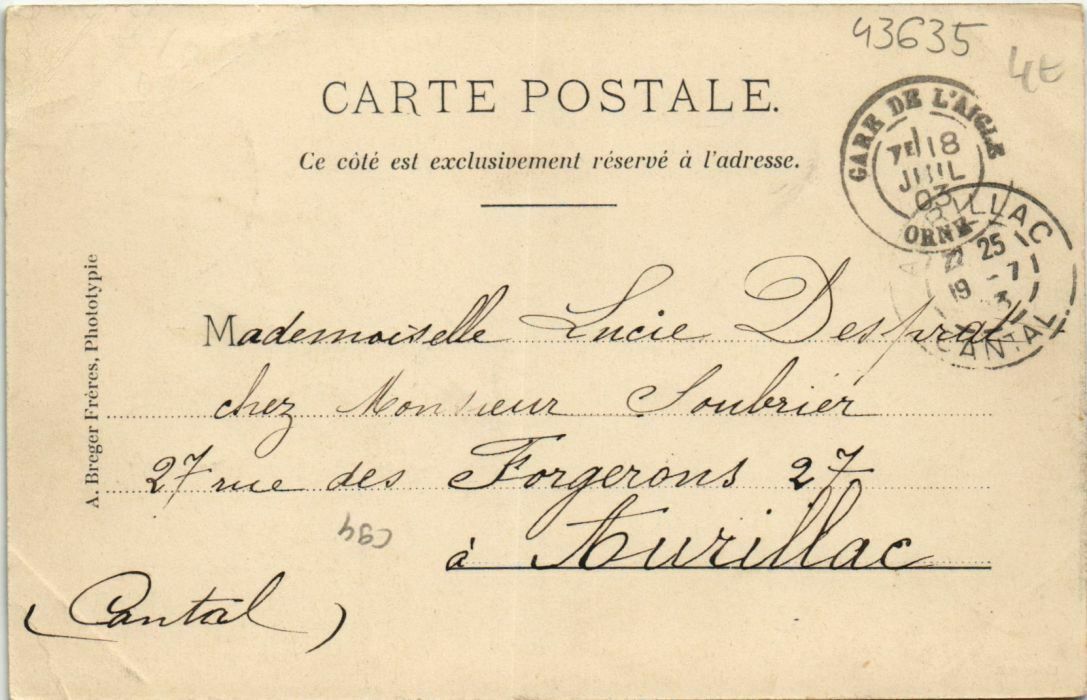 43635
4€
CARTE POSTALE.
Ce côté est exclusivement réservé à l'adresse.
GARE DE L'AIGLE
7E 18
JUIL
03
ORNE
AURILLAC
22 25
19 -7
3
CANTAL
A. Breger Frères, Phototypie
Mademoiselle Lucie Desprat
chez Monsieur Soubrier
27 rue des Forgerons 27
à Aurillac
(Cantal)
C94